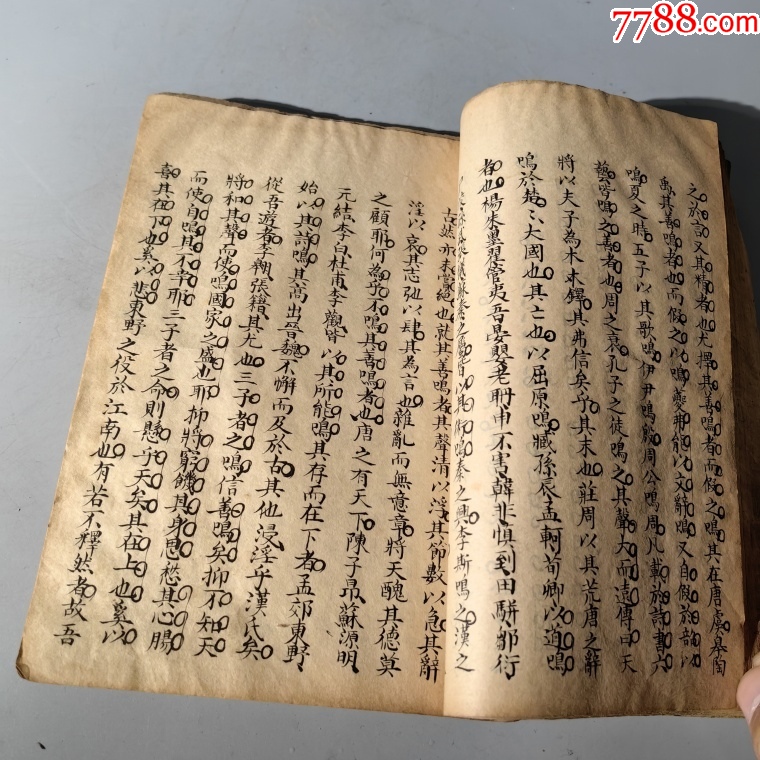 7788.com
之於言又其精者也尤擇其善鳴者而假之鳴其在唐虞咎陶
禹其善鳴者也而假之以鳴夔弗能以文辭鳴又自假於韶以
鳴夏之時五子以其歌鳴伊尹鳴殷周公鳴周凡載於詩書六
藝皆鳴之善者也周之衰孔子之徒鳴之其聲大而遠傳曰天
將以夫子為木鐸其弗信矣乎其末也莊周以其荒唐之辭
鳴於楚楚大國也其亡也以屈原鳴臧孫辰孟軻荀卿以道鳴
者也楊朱墨翟管夷吾晏嬰老聃申不害韓非慎到田駢鄒衍
之屬皆以其術鳴秦之興李斯鳴之漢之
古然亦未嘗絕也就其善鳴者其聲清以浮其節數以急其辭
淫以哀其志弛以肆其為言也雜亂而無章將天醜其德莫
之顧耶何為乎不鳴其善鳴者也唐之有天下陳子昂蘇源明
元結李白杜甫李觀皆以其所能鳴其存而在下者孟郊東野
始以其詩鳴其高出晉魏不懈而及於古其他浸淫乎漢氏矣
從吾遊者李翱張籍其尤也三子者之鳴信善鳴矣抑不知天
將和其聲而使鳴國家之盛也耶抑將窮餓其身思愁其心腸
而使自鳴其不幸耶三子者之命則懸乎天矣其在上也奚以
喜其在下也奚以悲東野之役於江南也有若不釋然者故吾